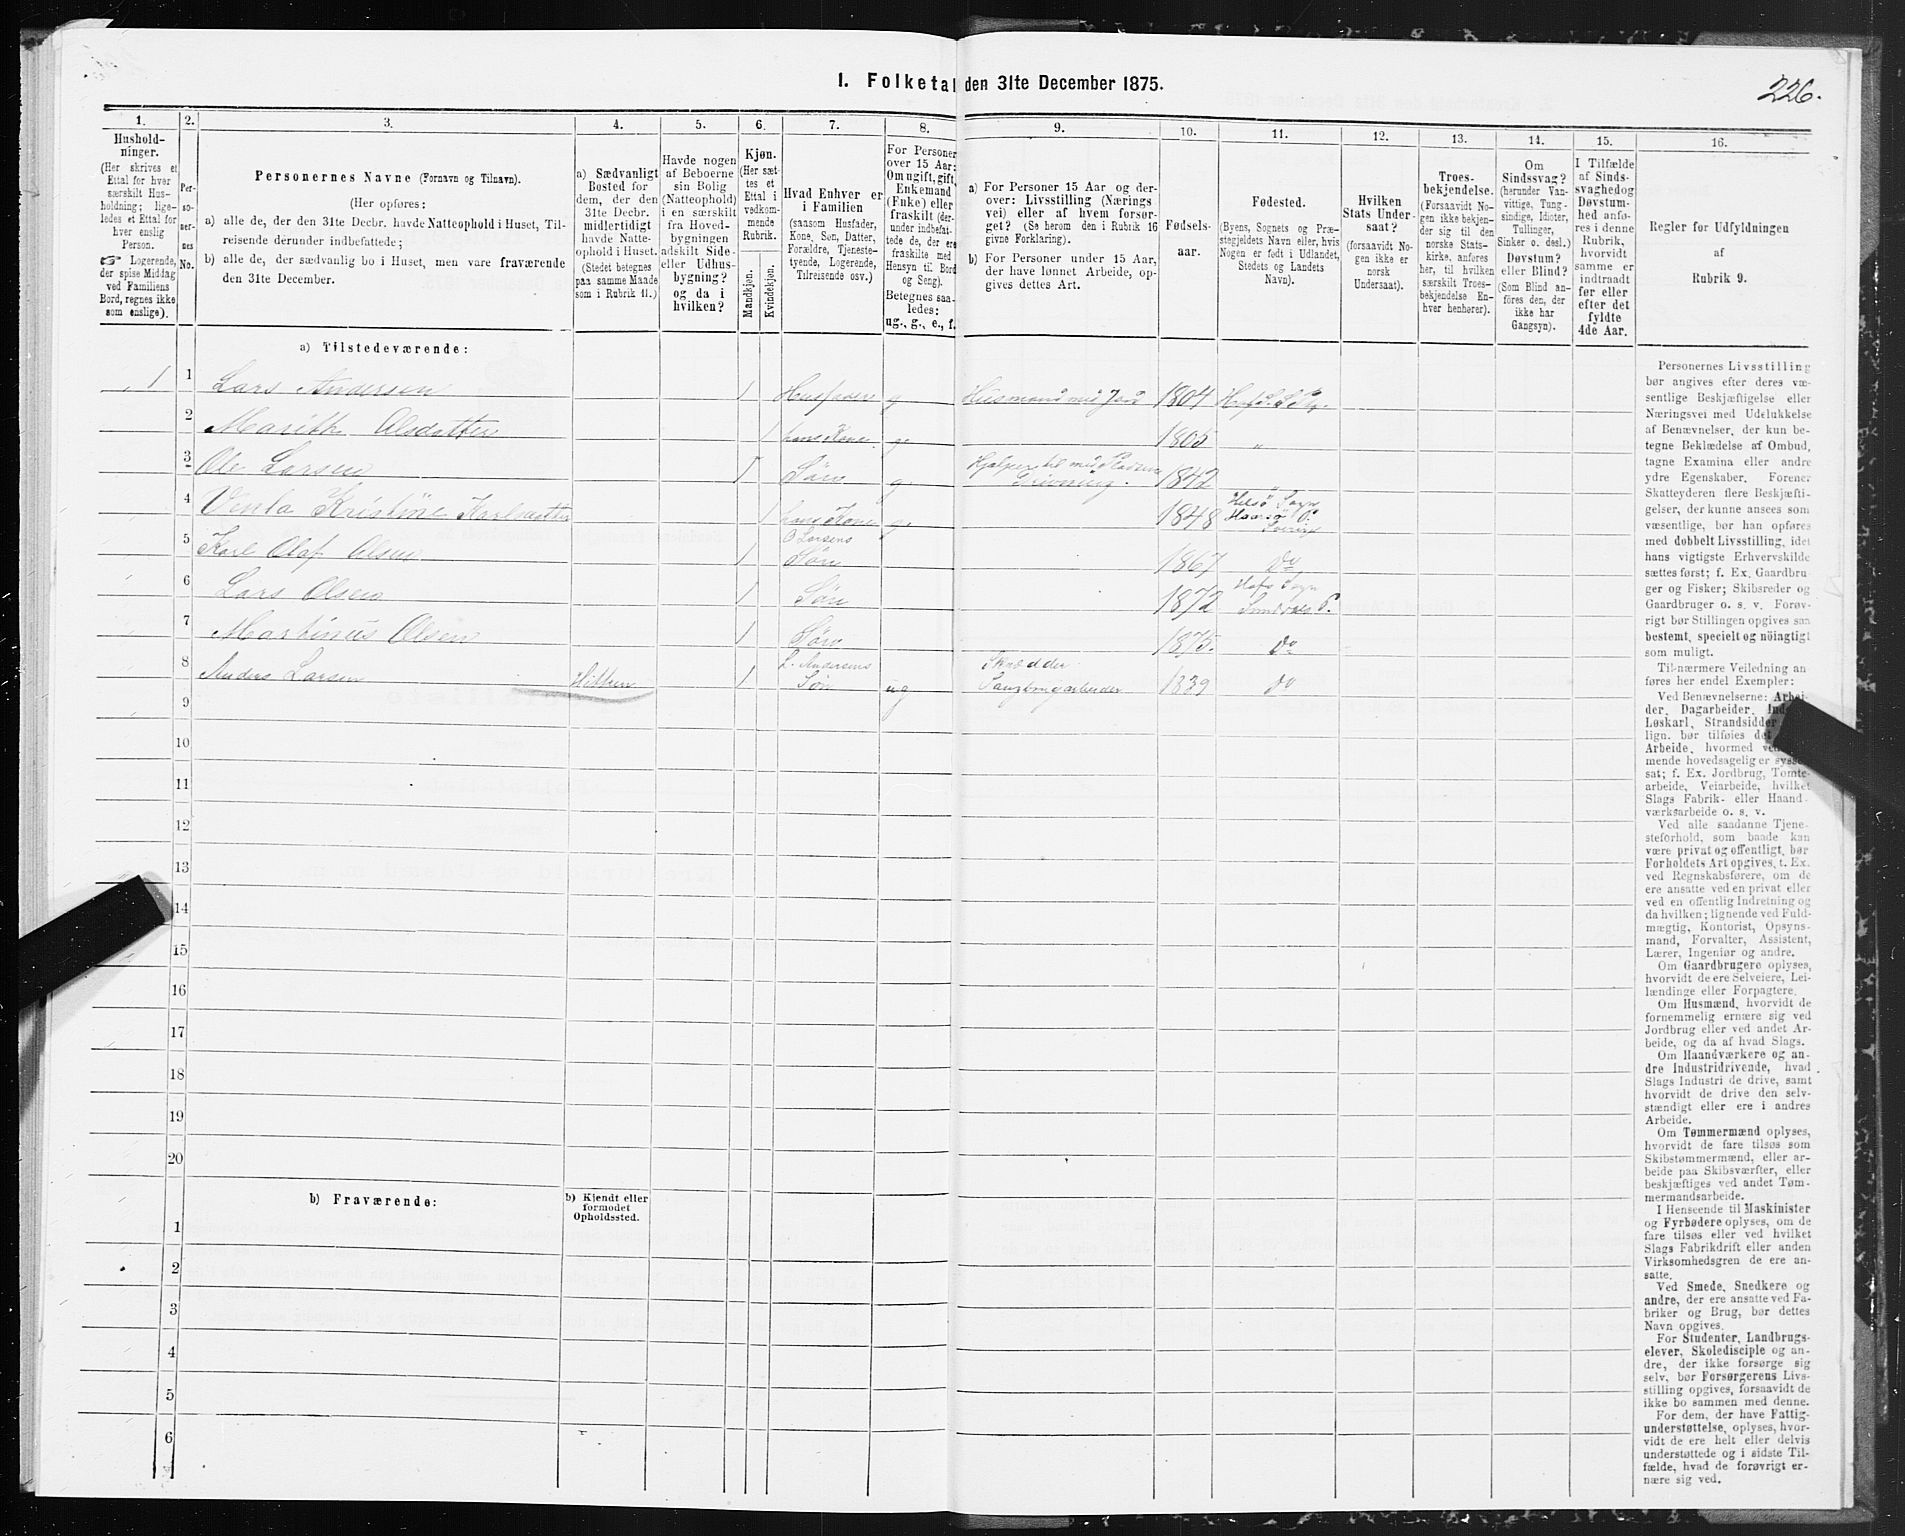 226.
I. Folketal den 31te December 1875.
1.
Hushold-
ninger.
(Her skrives et
Ettal for hver
særskilt Hus-
holdning; lige-
ledes et Ettal for
hver enslig
Person.
☞ Logerende,
der spise Middag
ved Familiens
Bord, regnes ikke
som enslige).
2.
Per-
so-
ner-
nes
No.
3.
Personernes Navne (Fornavn og Tilnavn).
(Her opføres:
a) alle de, der den 31te Decbr. havde Natteophold i Huset, Til-
reisende derunder indbefattede;
b) alle de, der sædvanlig bo i Huset, men vare fraværende
den 31te December.
4.
a) Sædvanligt
Bosted for
dem, der den
31te Decbr.
midlertidigt
havde Natte-
ophold i Huset.
(Stedet betegnes
paa samme Maade
som i Rubrik 11.)
5.
Havde nogen
af Beboerne
sin Bolig
(Natteophold)
i en særskilt
fra Hoved-
bygningen
adskilt Side-
eller Udhus-
bygning?
og da i
hvilken?
6.
Kjøn.
(Her sæt-
tes et
Ettal i
vedkom-
mende
Rubrik.
Mandkjøn.
Kvindekjøn.
7.
Hvad Enhver er
i Familien
(saasom Husfader,
Kone, Søn, Datter,
Forældre, Tjeneste-
tyende, Logerende,
Tilreisende osv.)
8.
For Personer
over 15 Aar:
Om ugift, gift,
Enkemand
(Enke) eller
fraskilt (der-
under indbefat-
tede de, der ere
fraskilte med
Hensyn til Bord
og Seng).
Betegnes saa-
ledes:
ug., g., e., f.
9.
a) For Personer 15 Aar og der-
over: Livsstilling (Nærings-
vei) eller af hvem forsør-
get? (Se herom den i Rubrik 16
givne Forklaring).
b) For Personer under 15 Aar,
der have lønnet Arbeide, op-
gives dettes Art.
10.
Fødsels-
aar.
11.
Fødested.
(Byens, Sognets og Præ-
stegjeldets Navn eller, hvis
Nogen er født i Udlandet,
Stedets og Landets
Navn).
12.
Hvilken
Stats Under-
saat?
(forsaavidt No-
gen ikke er
norsk
Undersaat).
13.
Troes-
bekjendelse.
(Forsaavidt No-
gen ikke bekjen-
der sig til den
norske Stats-
kirke, anføres
her, til hvilken
særskilt Troes-
bekjendelse En-
hver henhører).
14.
Om
Sindssvag?
(herunder Van-
vittige, Tung-
sindige, Idioter,
Tullinger,
Sinker o. desl.)
Døvstum?
eller Blind?
(Som Blind an-
føres den, der
ikke har
Gangsyn).
15.
I Tilfælde
af Sinds-
svaghed og
Døvstum-
hed anfø-
res i denne
Rubrik,
hvorvidt
samme er
indtraadt
før eller
efter det
fyldte
4de Aar.
16.
Regler for Udfyldningen
af
Rubrik 9.
a) Tilstedeværende:
1 1 Lars Andersen 1 Husfader g Husmand med Jord 1804
2 Marith Olsdatter 1 hans Kone g. 1805 „
3 Ole Larsen 1 Søn g Hjælper til med Pladsens Drivning. 1842 „
4 Venla Kristine Karlsdatter 1 hans Kone g. 1848 Sogn
5 Karl Olaf Olsen 1 O Larsens Søn 1867 Do
6 Lars Olsen 1 Søn 1872 Sogn P.
7 Martinus Olsen 1 Søn 1875. Do
8 Anders Larsen 1 L. Andersens Søn ug Skrædder Saugbrugarbeider 1839 Do
9
10
11
12
13
14
15
16
17
18
19
20
b) Fraværende:
b) Kjendt eller
formodet
Opholdssted.
1
2
3
4
5
6
Personernes Livsstilling
bør angives efter deres væ-
sentlige Beskjæftigelse eller
Næringsvei med Udelukkelse
af Benævnelser, der kun be-
tegne Beklædelse af Ombud,
tagne Examina eller andre
ydre Egenskaber. Forener
Skatteyderen flere Beskjæfti-
gelser, der kunne ansees som
væsentlige, bør han opføres
med dobbelt Livsstilling, idet
hans vigtigste Erhvervskilde
sættes først; f. Ex. Gaardbru-
ger og Fisker; Skibsreder og
Gaardbruger o. s. v. Forøv-
rigt bør Stillingen opgives saa
bestemt, specielt og nöiagtigt
som muligt.
Til nærmere Veiledning an-
føres her endel Exempler:
Ved Benævnelserne: Arbei-
der, Dagarbeider,
Løskarl, Strandsidder
lign. bør tilføies det
Arbeide, hvormed
mende hovedsagelig er syssel-
sat; f. Ex. Jordbrug, Tomte-
arbeide, Veiarbeide, hvilket
Slags Fabrik- eller Haand-
værksarbeide o. s. v.
Ved alle saadanne Tjene-
steforhold, som baade kan
være privat og offentligt, bør
Forholdets Art opgives, t. Ex.
ved Regnskabsførere, om de
ere ansatte ved en privat eller
ved en offentlig Indretning og
da hvilken; lignende ved Fuld-
mægtig, Kontorist, Opsyns-
mand, Forvalter, Assistent,
Lærer, Ingeniør og andre.
Om Gaardbrugere oplyses,
hvorvidt de ere Selveiere, Lei-
lændinge eller Forpagtere.
Om Husmænd, hvorvidt de
fornemmelig ernære sig ved
Jordbrug eller ved andet Ar-
beide, og da af hvad Slags.
Om Haandværkere og an-
dre Industridrivende, hvad
Slags Industri de drive, samt
hvorvidt de drive den selv-
stændigt eller ere i andres
Arbeide.
Om Tømmermænd oplyses,
hvorvidt de fare tilsøs som
Skibstømmermænd, eller ar-
beide paa Skibsværfter, eller
beskjæftiges ved andet Tøm-
mermandsarbeide.
I Henseende til Maskinister
og Fyrbødere oplyses, om de
fare tilsøs eller ved hvilket
Slags Fabrikdrift eller anden
Virksomhedsgren de ere an-
satte.
Ved Smede, Snedkere og
andre, der ere ansatte ved Fa-
briker og Brug, bør dettes
Navn opgives.
For Studenter, Landbrugs-
elever, Skoledisciple og an-
dre, der ikke forsørge sig
selv, bør Forsørgerens Livs-
stilling opgives, forsaavidt de
ikke bo sammen med denne.
For dem, der have Fattig-
understøttelse, oplyses, hvor-
vidt de ere helt eller delvis
understøttede og i sidste Til-
fælde, hvad de forøvrigt er-
nære sig ved.